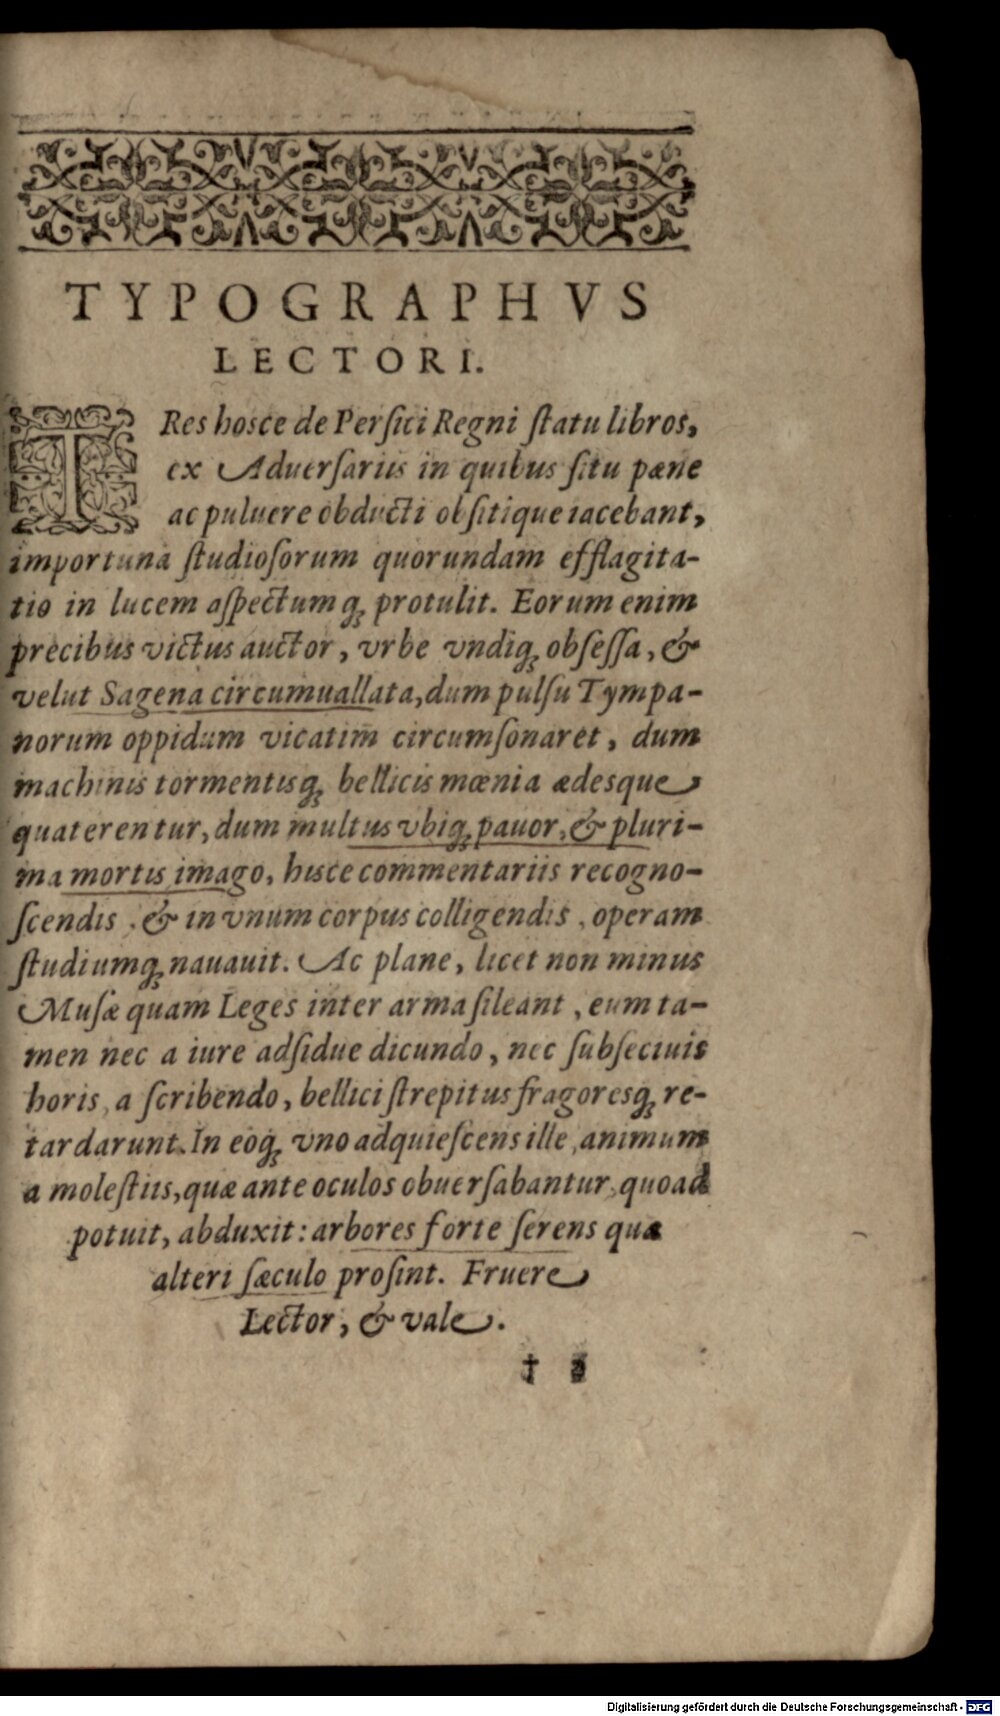 TYPOGRAPHVS
LECTORI.
TRes hosce de Perſici Regni ſtatu libros,
ex Aduerſariis in quibus ſitu pæne
ac puluere obducti obſitique iacebant,
importuna ſtudioſorum quorundam efflagita-
tio in lucem aſpectumq́ꝫ protulit. Eorum enim
precibus victus auctor, vrbe vndiqꝫ obſeſſa, &
velut Sagena circumuallata, dum pulſu Tympa-
norum oppidum vicatim circumſonaret, dum
machinis tormentisqꝫ bellicis mœnia ædesque
quaterentur, dum multus vbiqꝫ pauor, & pluri-
ma mortis imago, hisce commentariis recogno-
ſcendis, & in vnum corpus colligendis, operam
ſtudiumqꝫ nauauit. Ac plane, licet non minus
Muſæ quam Leges inter arma ſileant, eum ta-
men nec a iure adſidue dicundo, nec ſubſeciuis
horis, a ſcribendo, bellici ſtrepitus fragoresqꝫ re-
tardarunt. In eoqꝫ vno adquieſcens ille, animum
a moleſtiis, quæ ante oculos obuerſabantur, quoad
potuit, abduxit: arbores forte ſerens quæ
alteri ſæculo proſint. Fruere
Lector, & vale.
† 2
Digitalisierung gefördert durch die Deutsche Forschungsgemeinschaft - DFG